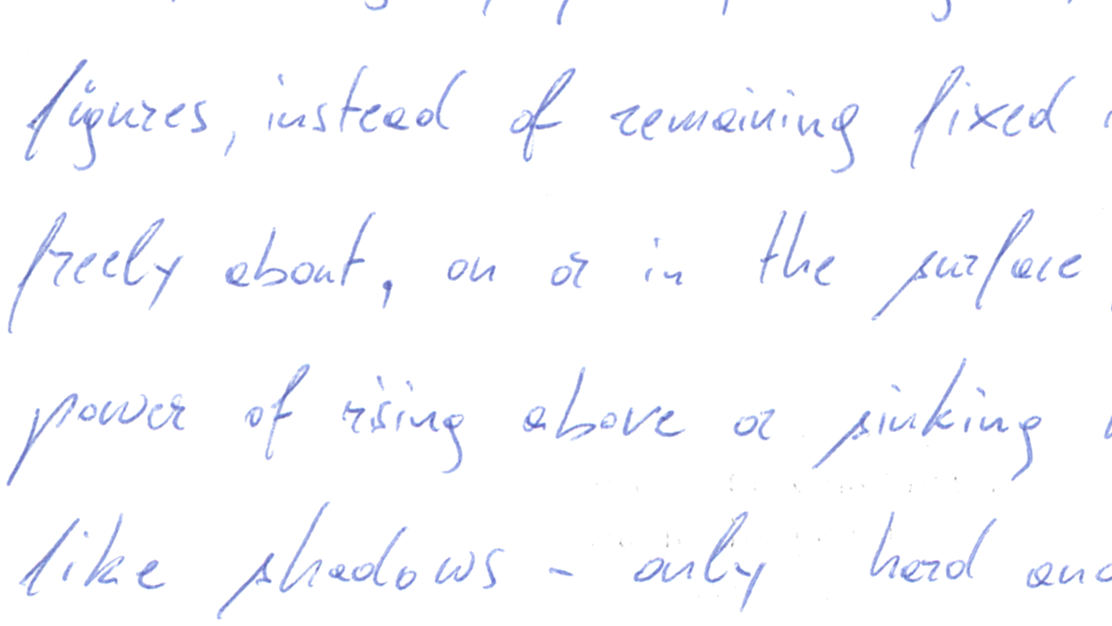 figures, instead of remaining fixed
freely about, on or in the surface
power of rising above or sinking
like shadows - only hard and